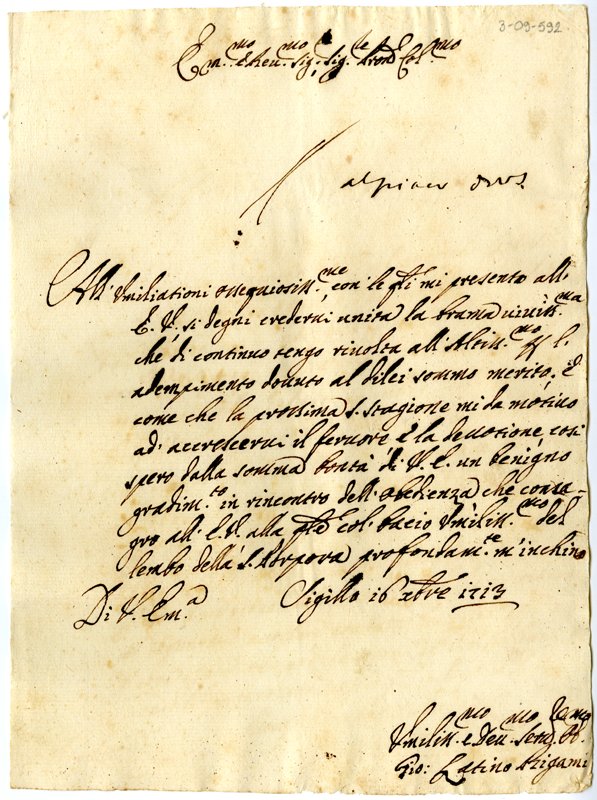 3-09-592
Em.mo e Reu.mo Sig.re Sig.re Pron Col.mo
al piacer
All' Vmiliationi ossequiosiss.me con le q.li mi presento all'
E. V. si degni credervi unita la brama uiuiss.ma
che di continuo tengo riuolta all' Altiss.mo l'
adempimento douuto al di lei sommo merito. E
come che la prossima s. stagione mi da motiuo
ad' accrescerui il feruore è la deuotione, così
spero dalla somma bontà di V. E. un benigno
gradim.to in rincontro dell' obedienza che consa-
gro all' E. V. alla q.le col bacio Vmiliss.mo del
lembo della S. Porpora profondam.te m'inchino
Di V. Em.a Sigillo 16 Xbre 1713
Vmiliss.mo e Deu.mo Seru.
Gio: Latino Brigami